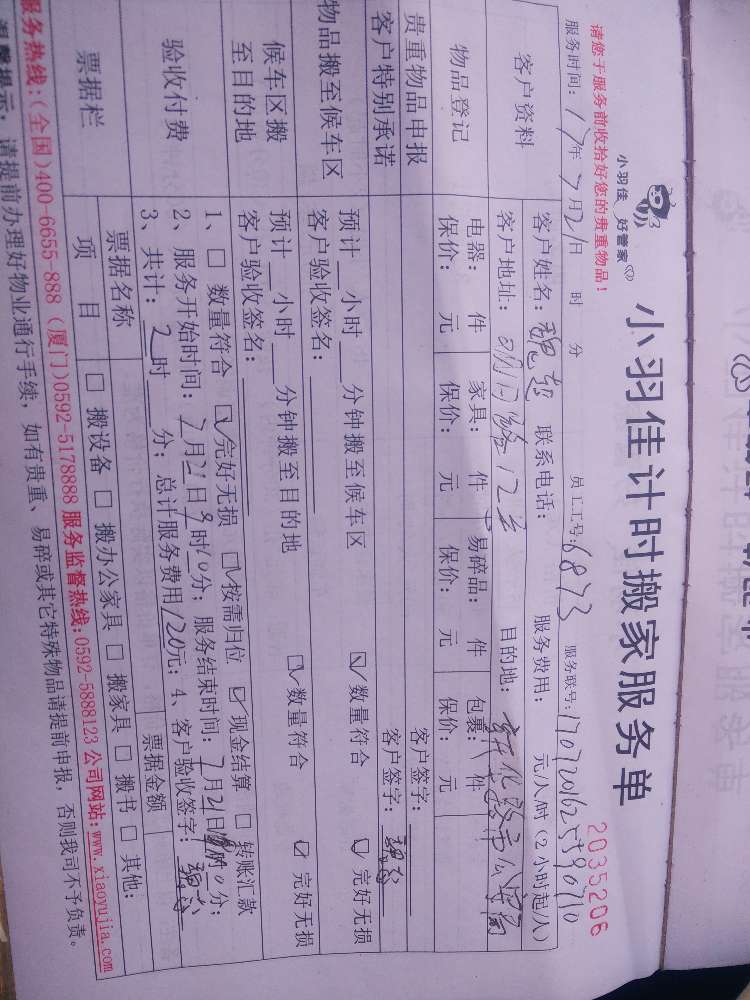 小羽佳 好管家
小羽佳计时搬家服务单
2035206
请您于服务前收拾好您的贵重物品!
服务时间: 17年 7月21日 时 分 员工工号: 6873 服务联号:
客户资料
客户姓名: 联系电话: 服务费用: 元/人/时(2小时起/人)
客户地址: 目的地:
物品登记
电器: 件 家具: 件 易碎品: 件 包裹: 件
保价: 元 保价: 元 保价: 元 保价: 元
贵重物品申报 客户签字:
客户特别承诺 客户签字:
物品搬至候车区
预计 小时 分钟搬至候车区 数量符合 完好无损
客户验收签名:
候车区搬至目的地
预计 小时 分钟搬至目的地 数量符合 完好无损
客户验收签名:
验收付费
1、 数量符合 完好无损 按需归位 现金结算 转账汇款
2、服务开始时间: 7月21日9时10分; 服务结束时间: 7月21日 时 分;
3、共计: 2时 分; 总计服务费用120元; 4、客户验收签字:
票据栏
票据名称 票据金额
项目 搬设备 搬办公家具 搬家具 搬书 其他:
服务热线:(全国)400-6655-888 (厦门)0592-5178888 服务监督热线:0592-5888123 公司网站:www.xiaoyujia.com
温馨提示: 请提前办理好物业通行手续, 如有贵重、易碎或其它特殊物品请提前申报, 否则我司不予负责。